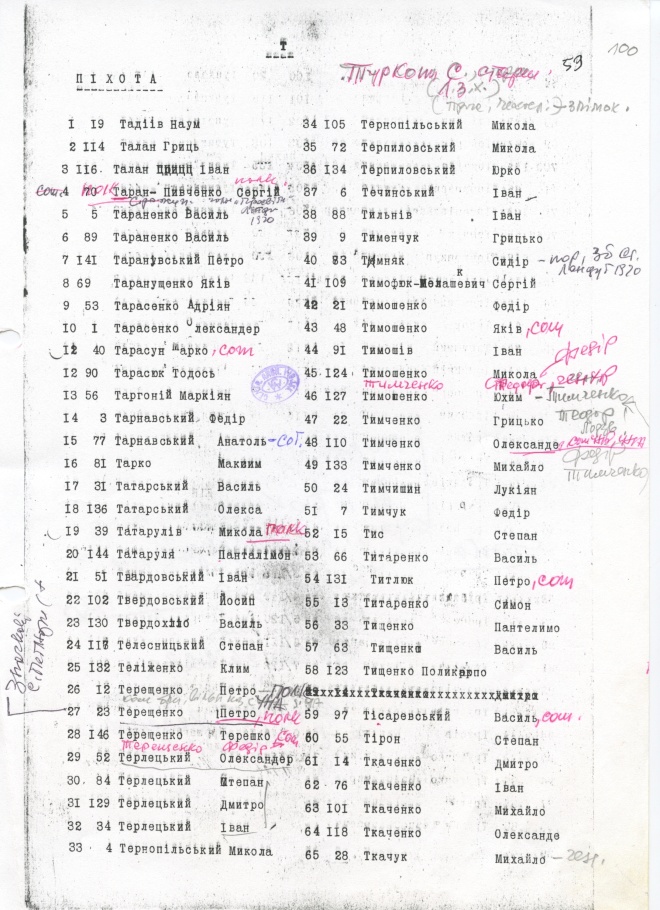 Т
59
100
ПІХОТА
Туркот С., старш.
(Л.З.Х.)
1 19 Тадіів Наум
2 114 Талан Гриць
3 116 Талан Іван
сот. 4 70 полк Таран-Пивченко Сергій полк
1920
5 5 Тараненко Василь
6 89 Тараненко Василь
7 141 Таранувський Петро
8 69 Таранущенко Яків
9 53 Тарасенко Адріян
10 1 Тарасенко Олександер
12 40 Тарасун Марко, сот
12 90 Тарасюк Тодось
13 56 Таргоній Маркіян
14 3 Тарнавський Федір
15 77 Тарнавський Анатоль - сот.
16 81 Тарко Макиим
17 31 Татарський Василь
18 136 Татарський Олекса
19 39 Татарулів Микола полк
20 144 Татаруля Панталімон
21 51 Твардовський Іван
22 102 Твердовський Йосип
23 130 Твердохліо Василь
24 117 Телесницький Степан
25 132 Теліженко Клим
26 12 Терещенко Петро - полк
27 23 Терещенко Петро, полк
28 146 Терещенко Терешко сот
Терещенко Федір
29 52 Терлецький Олександер
30 84 Терлецький Штепан
31 129 Терлецький Дмитро
32 34 Терлецький Іван
33 4 Тернопільський Микола
34 105 Тернопільський Микола
35 72 Терпиловський Микола
36 134 Терпиловський Юрко
37 6 Течинський Іван
38 88 Тильнів Іван
39 9 Тименчук Грицько
40 93 Тимняк Сидір - пор,
1920
41 109 Тимофюк-Мелашевич Сергій
42 21 Тимошенко Федір
43 48 Тимошенко Яків, сот
44 91 Тимошів Іван
Федір
45 124 Тимошенко Микола
Тимченко
46 127 Тимошенко Юхим - Тимченко
Теодор
47 22 Тимченко Грицько
48 110 Тимченко Олександе, сот
Федір
49 133 Тимченко Михайло
Тимченко
50 24 Тимчишин Лукіян
51 7 Тимчук Федір
52 15 Тис Степан
53 66 Титаренко Василь
54 131 Титлюк Петро, сот
55 13 Титаренко Симон
56 33 Тищенко Пантелимо
57 63 Тищенко Василь
58 123 Тищенко Поликарпо
59 97 Тісаревський Василь, сот.
60 55 Тірон Степан
61 14 Ткаченко Дмитро
62 76 Ткаченко Іван
63 101 Ткаченко Михайло
64 118 Ткаченко Олександе
65 28 Ткачук Михайло